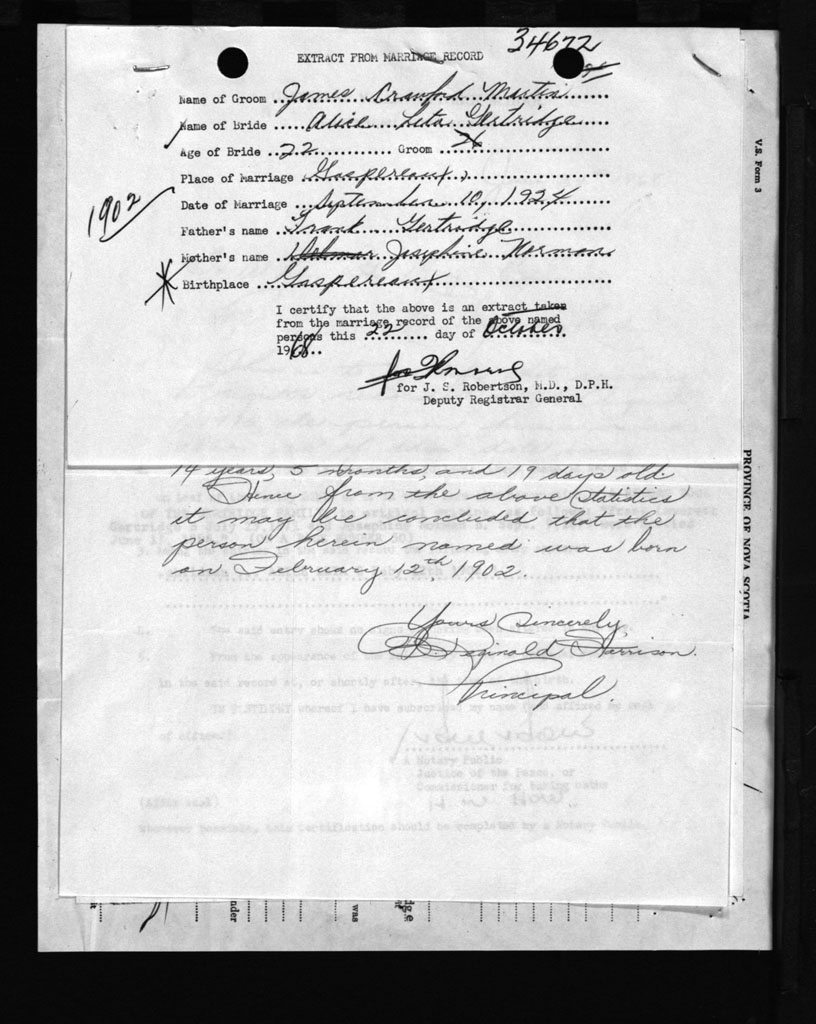 34672
EXTRACT FROM MARRIAGE RECORD
Name of Groom ..James Crawford Martin......
Name of Bride .....Alice Leta Gertridge....
Age of Bride ..22............. Groom ..26................
Place of Marriage ..Gaspereaux.,...................
Date of Marriage ...September 10, 1924
1902
Father's name ..Frank Gertridge..............
Mother's name ..Josephine Norman
Birthplace ....Gaspereaux........................
I certify that the above is an extract taken
from the marriage record of the above named
persons this ..22...... day of October
1968..
for J. S. Robertson, M.D., D.P.H.
Deputy Registrar General
14 years, 5 months, and 19 days old.
Hence from the above statistics
it may be concluded that the
person herein named was born
on February 12th, 1902.
Yours Sincerely
Reginald Harrison.
Principal.
V.S. Form 3
PROVINCE OF NOVA SCOTIA
was